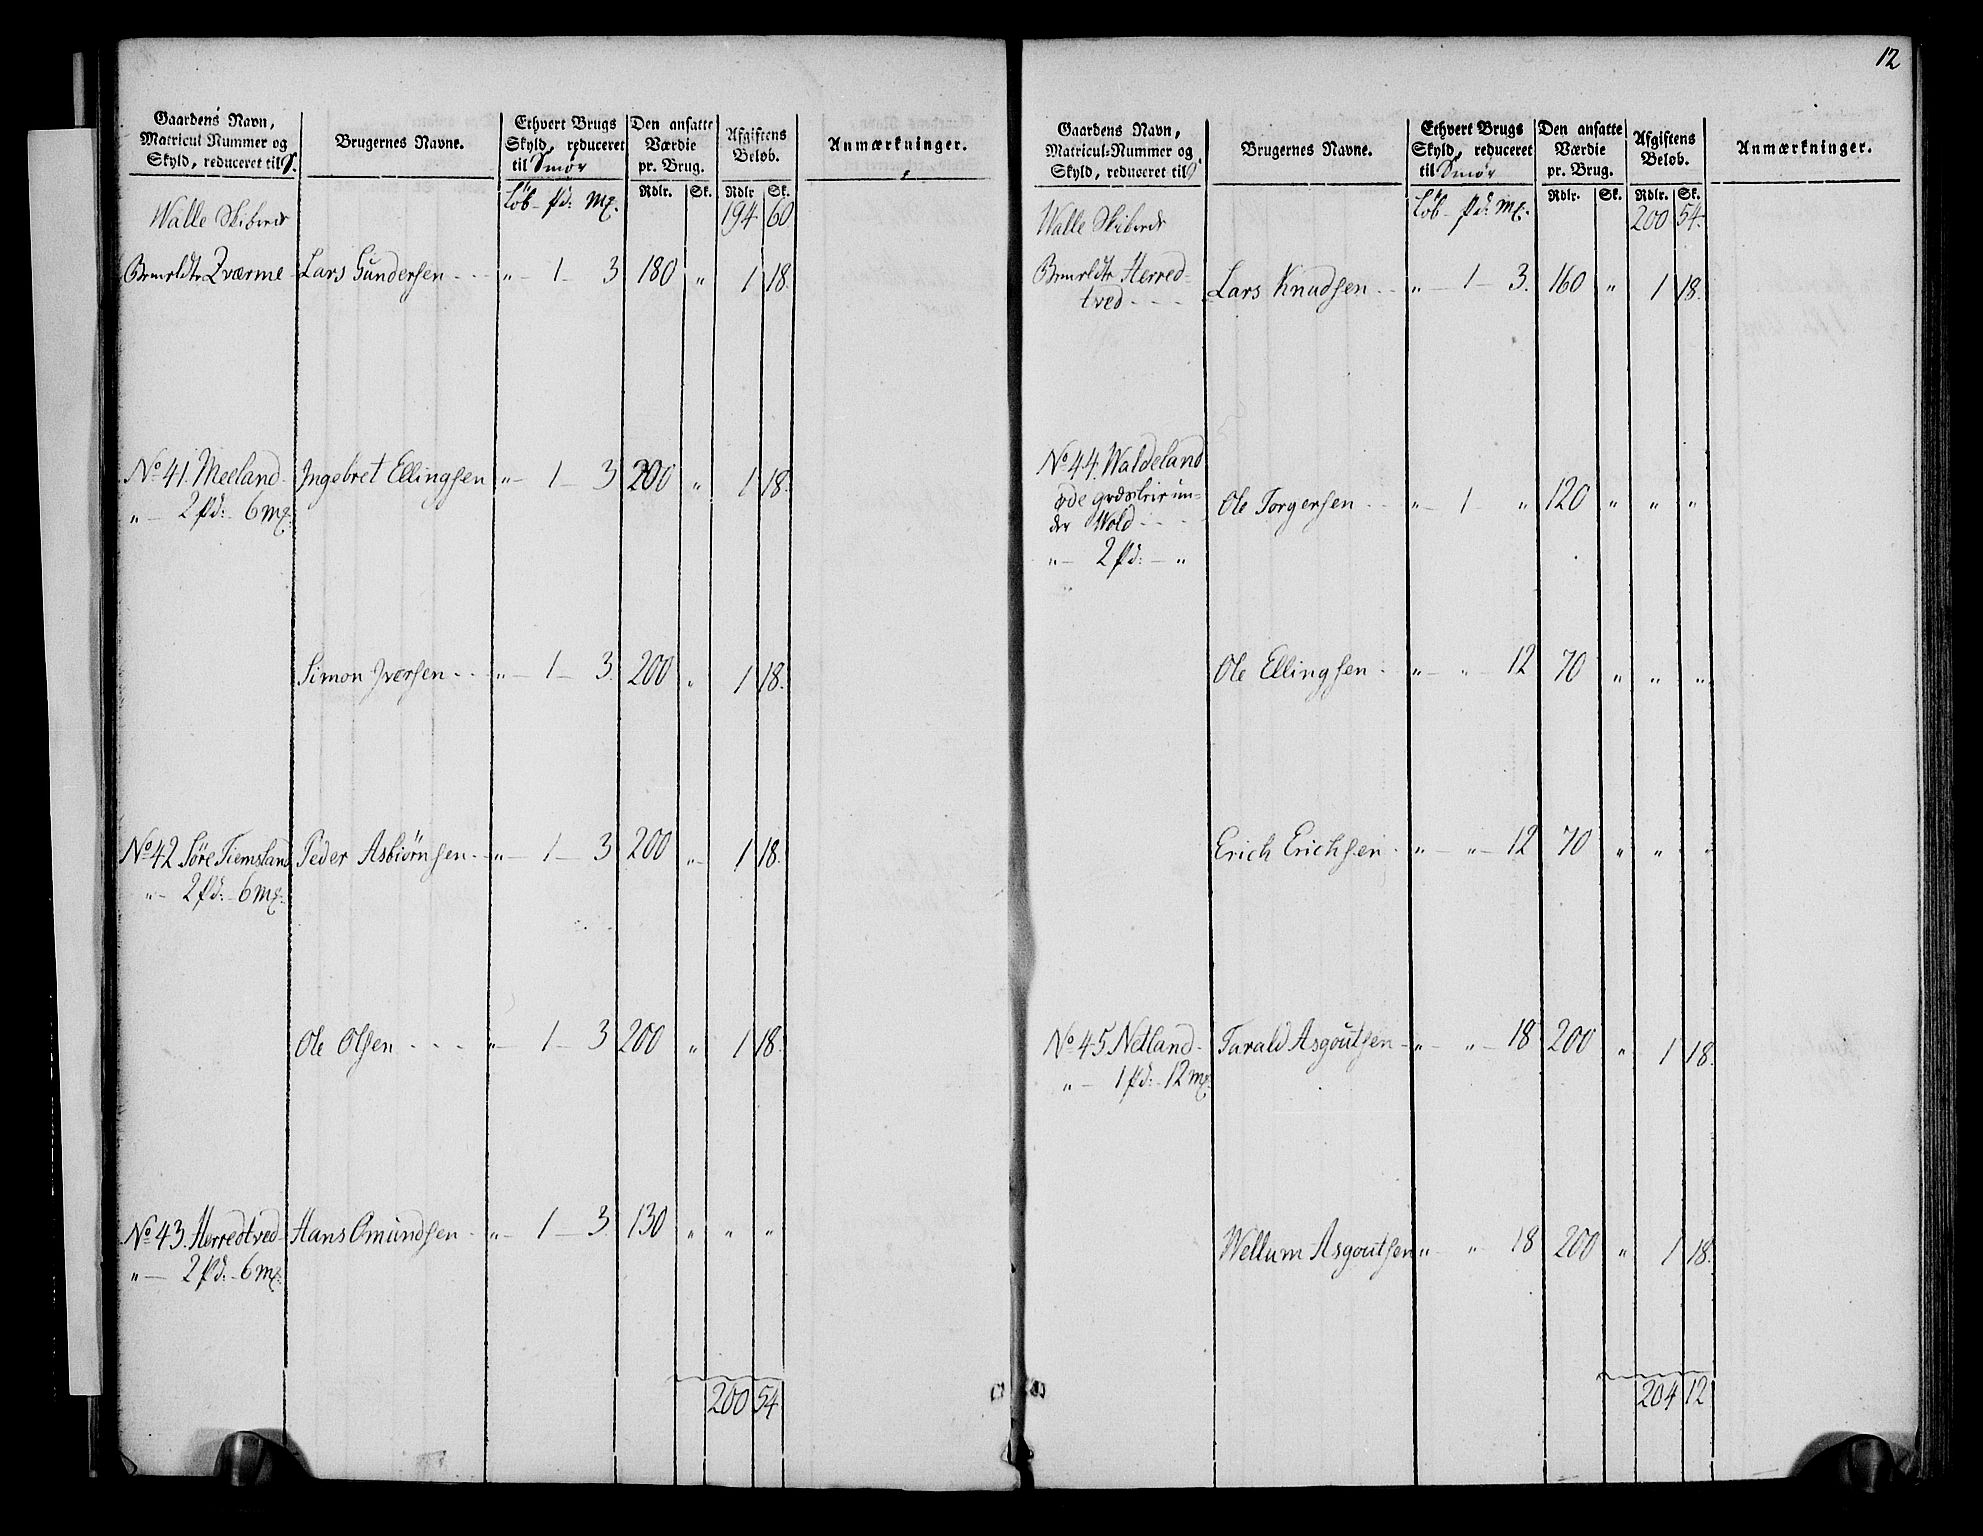 Gaardens Navn, Matricul Nummer og Skyld, reduceret til S.
Brugernes Navne.
Ethvert Brugs Skyld, reduceret til Smör
Den ansatte Værdie pr. Brug.
Afgiftens Beløb.
Anmærkninger.
Löb - pd: mp. Rdlr. Sk. Rdlr Sk.
Walle Skibrede 194 60
Zværme Lars Gundersen - - - " - 1 - 3 180 " 1 18.
No 41. Meeland Ingebret Ellingsen " - 1 - 3 200 " 1 18.
" - 2 pd: 6 mp.
Simon Iversen - - - " - 1 - 3 200 " 1 18.
No 42 Söre Tiemsland Peder Asbiörnsen - " - 1 - 3 200 " 1 18.
" - 2 pd: - 6 mp.
Ole Olsen - - - " - 1 - 3 200 " 1 18.
No 43. Herredtved Hans Omundsen - " - 1 - 3 130 " " "
" - 2 pd: - 6 mp.
200 54
12
Gaardens Navn, Matricul-Nummer og Skyld, reduceret til S
Brugernes Navne.
Ethvert Brugs Skyld, reduceret til Smör
Den ansatte Værdie pr. Brug.
Afgiftens Beløb.
Anmærkninger.
Löb - pd: mp. Rdlr. Sk. Rdlr. Sk.
Walle Skibrede 200 54
Herred-
tved - - - Lars Knudsen - - " - 1 - 3. 160 " 1 18.
No 44. Waldeland
öde under Wold - - - Ole Torgersen - - " - 1 - " 120 " " "
" - 2 pd: - "
Ole Ellingsen - " - " - 12 70 " " "
Erich Erichsen - " - " - 12 70 " " "
No 45. Netland - Tarald Asgoutsen - " - " - 18 200 " 1 18.
" - 1 pd: - 12 mp.
Wellum Asgoutsen " - " - 18 200 " 1 18.
204 12